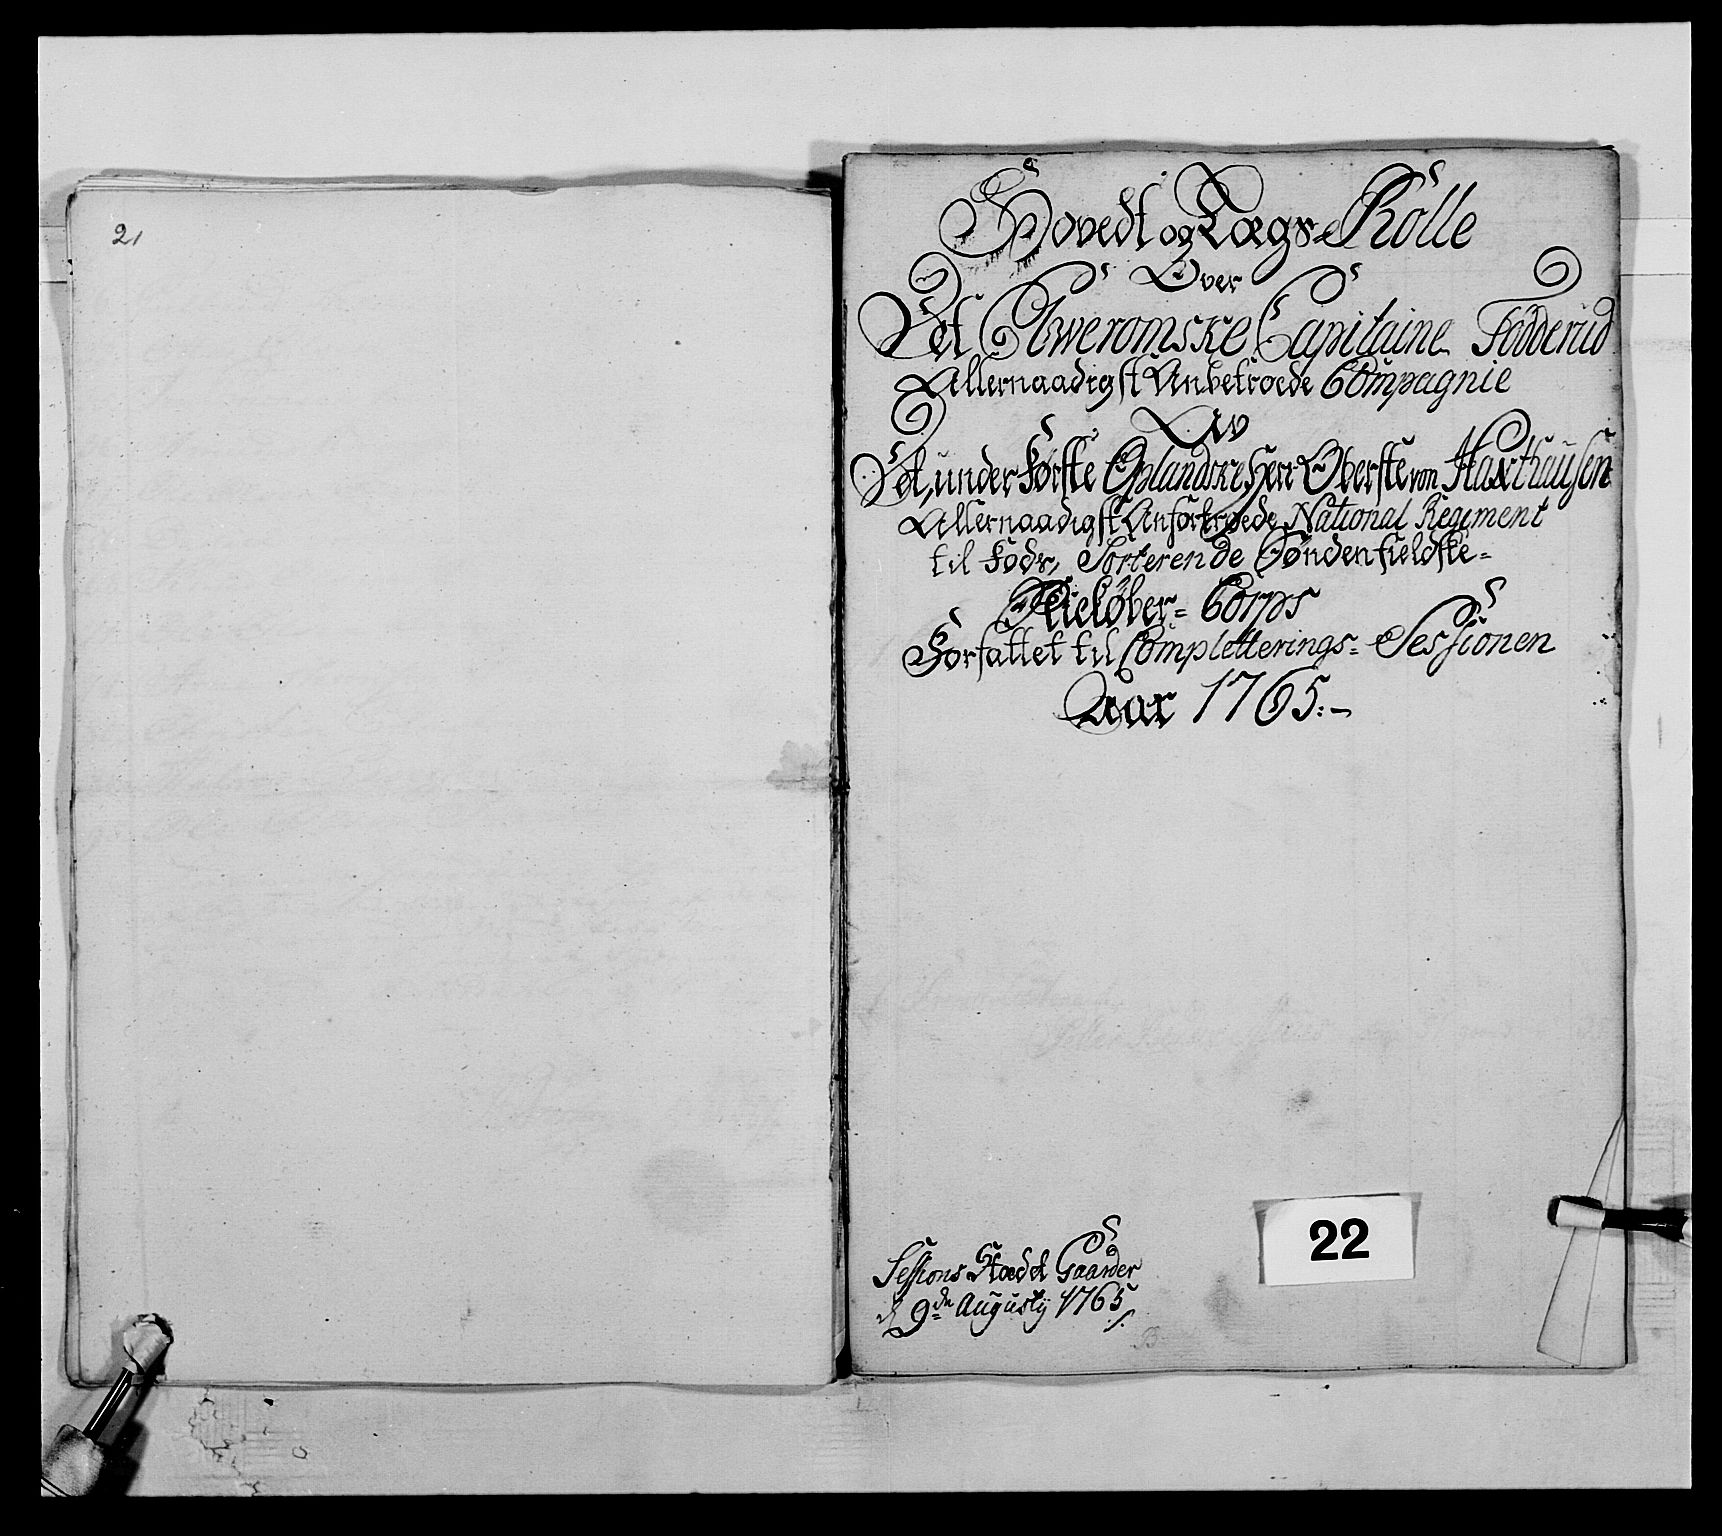 21
Hovedt og Lægs-Rolle
Over
Det Elweromske Capitaine Fodderud
Allernaadigst Anbetroede Compagnie
Av
Det, under Første Oplandske Herr Oberste von Haxthausen
Allernaadigst Anfortroede National Regiment
til Fods, Sorterende Søndenfieldske=
Skieløber= Corps
Forfattet til Completterings= Sessionen
Aar 1765:-
Sessions Stædet Gaarder
d 9de Augusty 1765
22